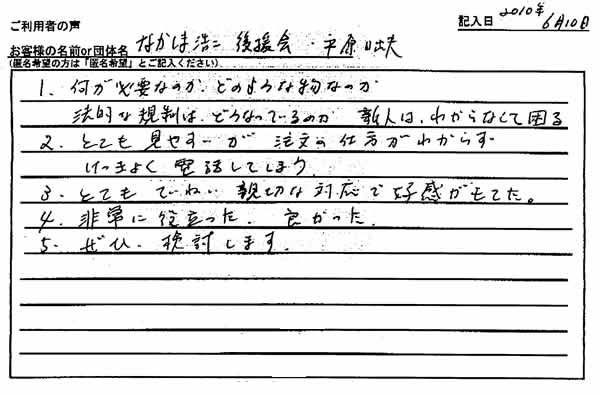 ご利用者の声
記入日 2010年6月10日
お客様の名前or団体名 なかま浩二 後援会・平原
(匿名希望の方は「匿名希望」とご記入ください)
1、何が必要なのか、どのような物なのか
法的な規制は、どうなっているのか 新人は、わからなくて困る
2、とても見やすいが 注文の仕方がわからず
けっきょく電話してしまう
3、とても ていねい 親切な対応で好感がもてた。
4、非常に役立った、良かった
5、ぜひ、検討します